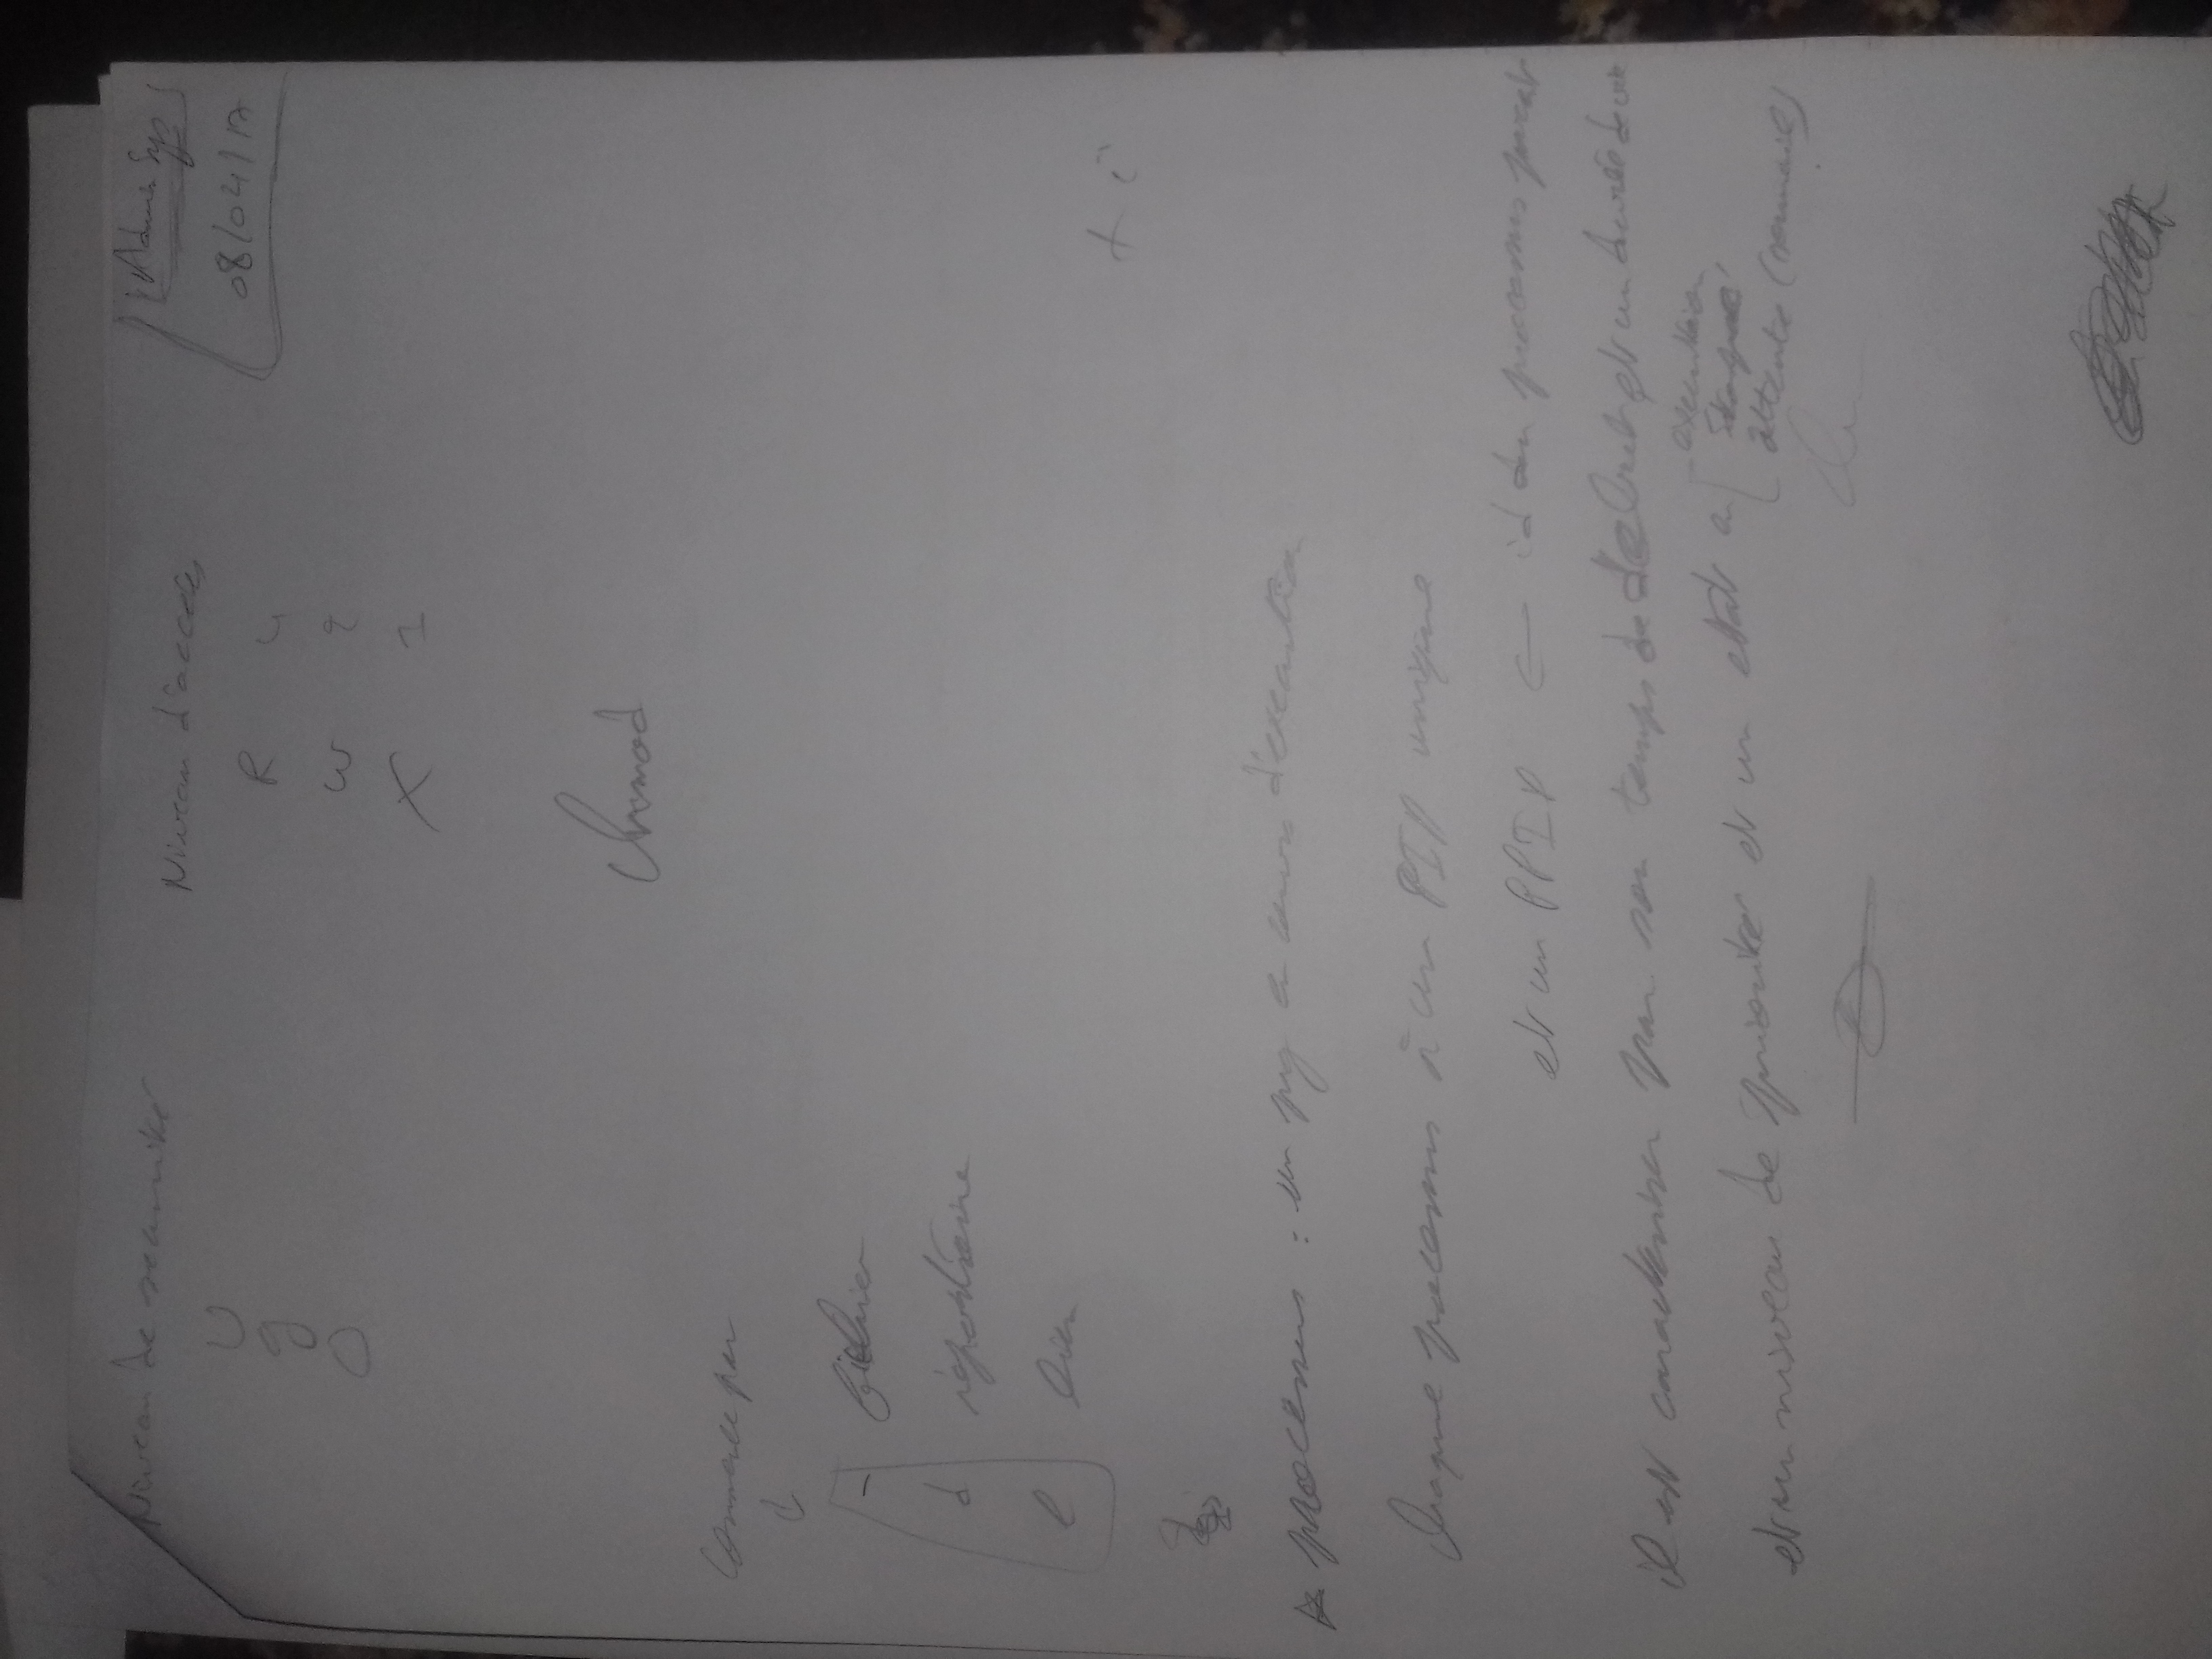 Admin Sys
08/04/17
Niveau de securité
Niveau d'accées
U
g
O
R 4
W 2
X 1
Chmod
Commence par
- fichier
d repertoire
l lien
+ i
processus : un prg en cours d'execution
Chaque processus à un PID unique
et un PPID ← id du processus parent
il est caracteriser par son temps de debut et un durée de vie
et un niveau de priorité et un etat en
execution
stoppé
attente (sommeil)